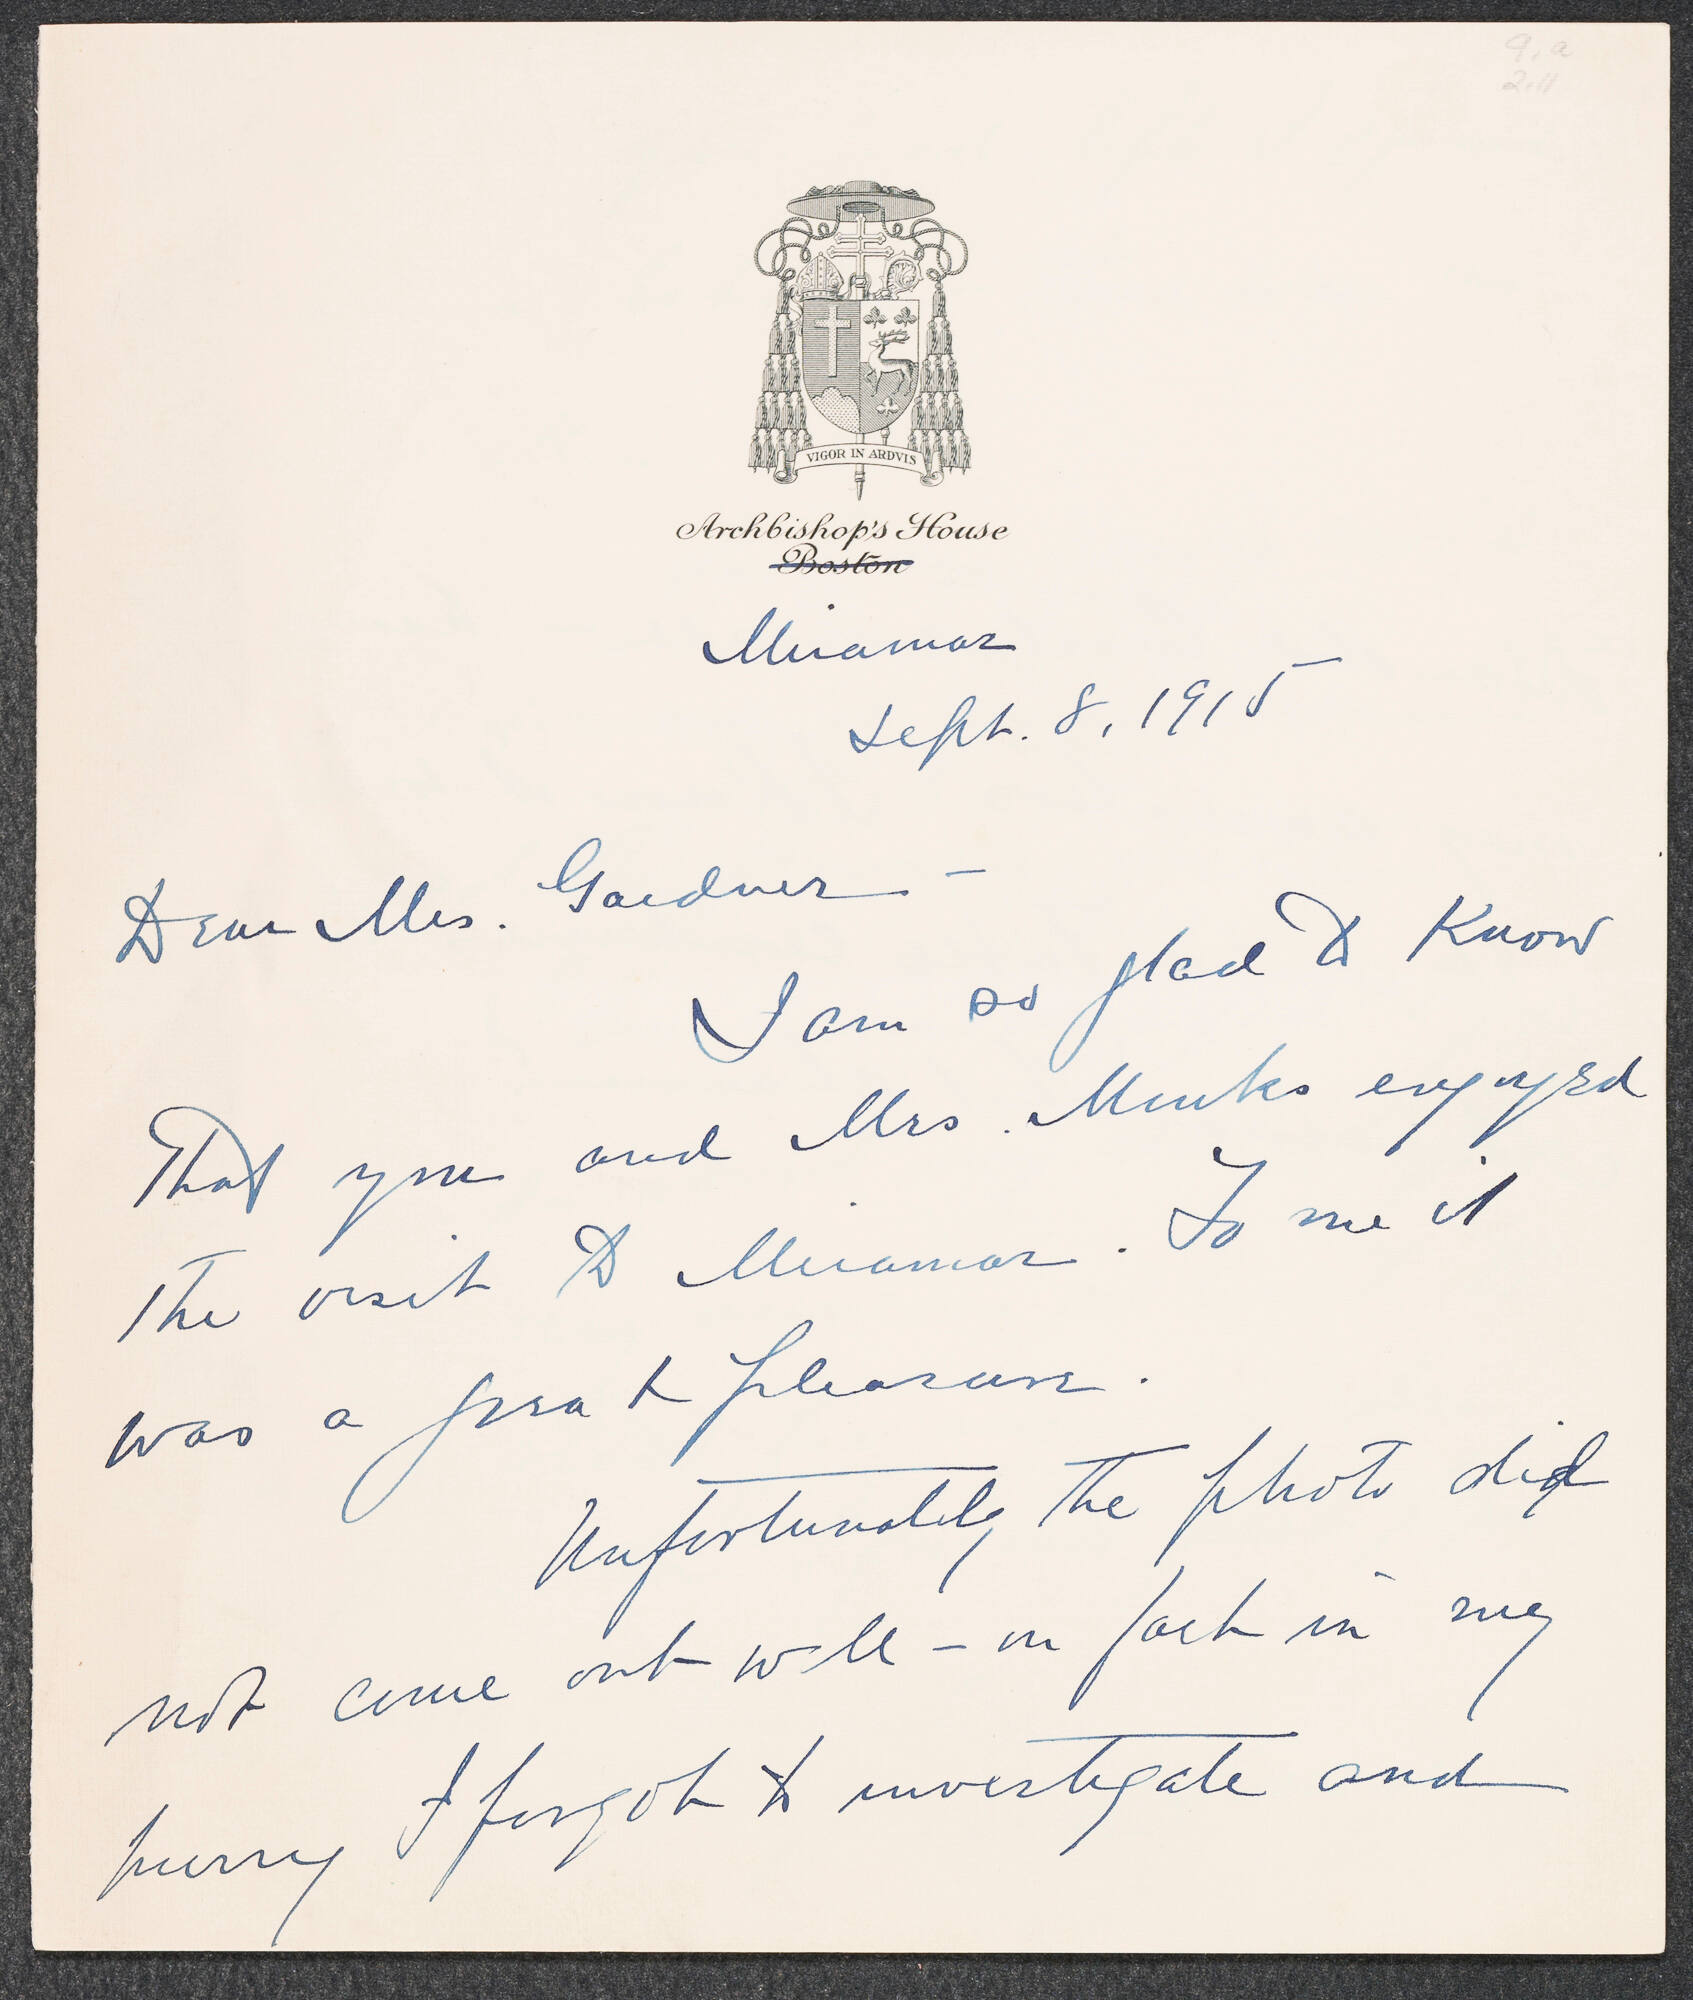 9.a
2.11
VIGOR IN ARDVIS
Archbishop's House
Boston
Miramar
Sept. 8, 1915
Dear Mrs. Gardner –
I am so glad to know
that you and Mrs. Monks enjoyed
the visit to Miramar. To me it
was a great pleasure.
Unfortunately the photo did
not come out well – in fact in my
hurry I forgot to investigate and